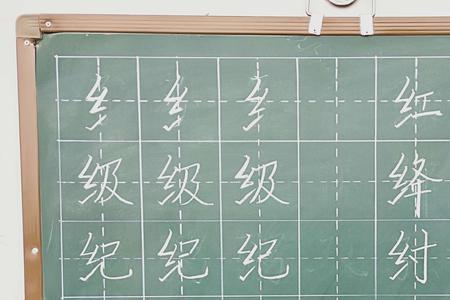 纟 纟 纟 红
级 级 级 绛
纪 纪 纪 纣